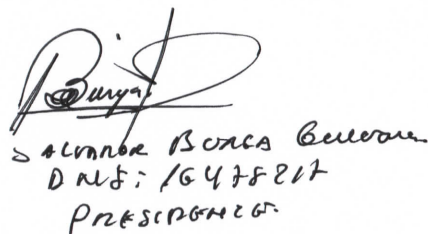 Bunya
SALVADOR BUNGA
DNI: 16478217
PRESIDENTE